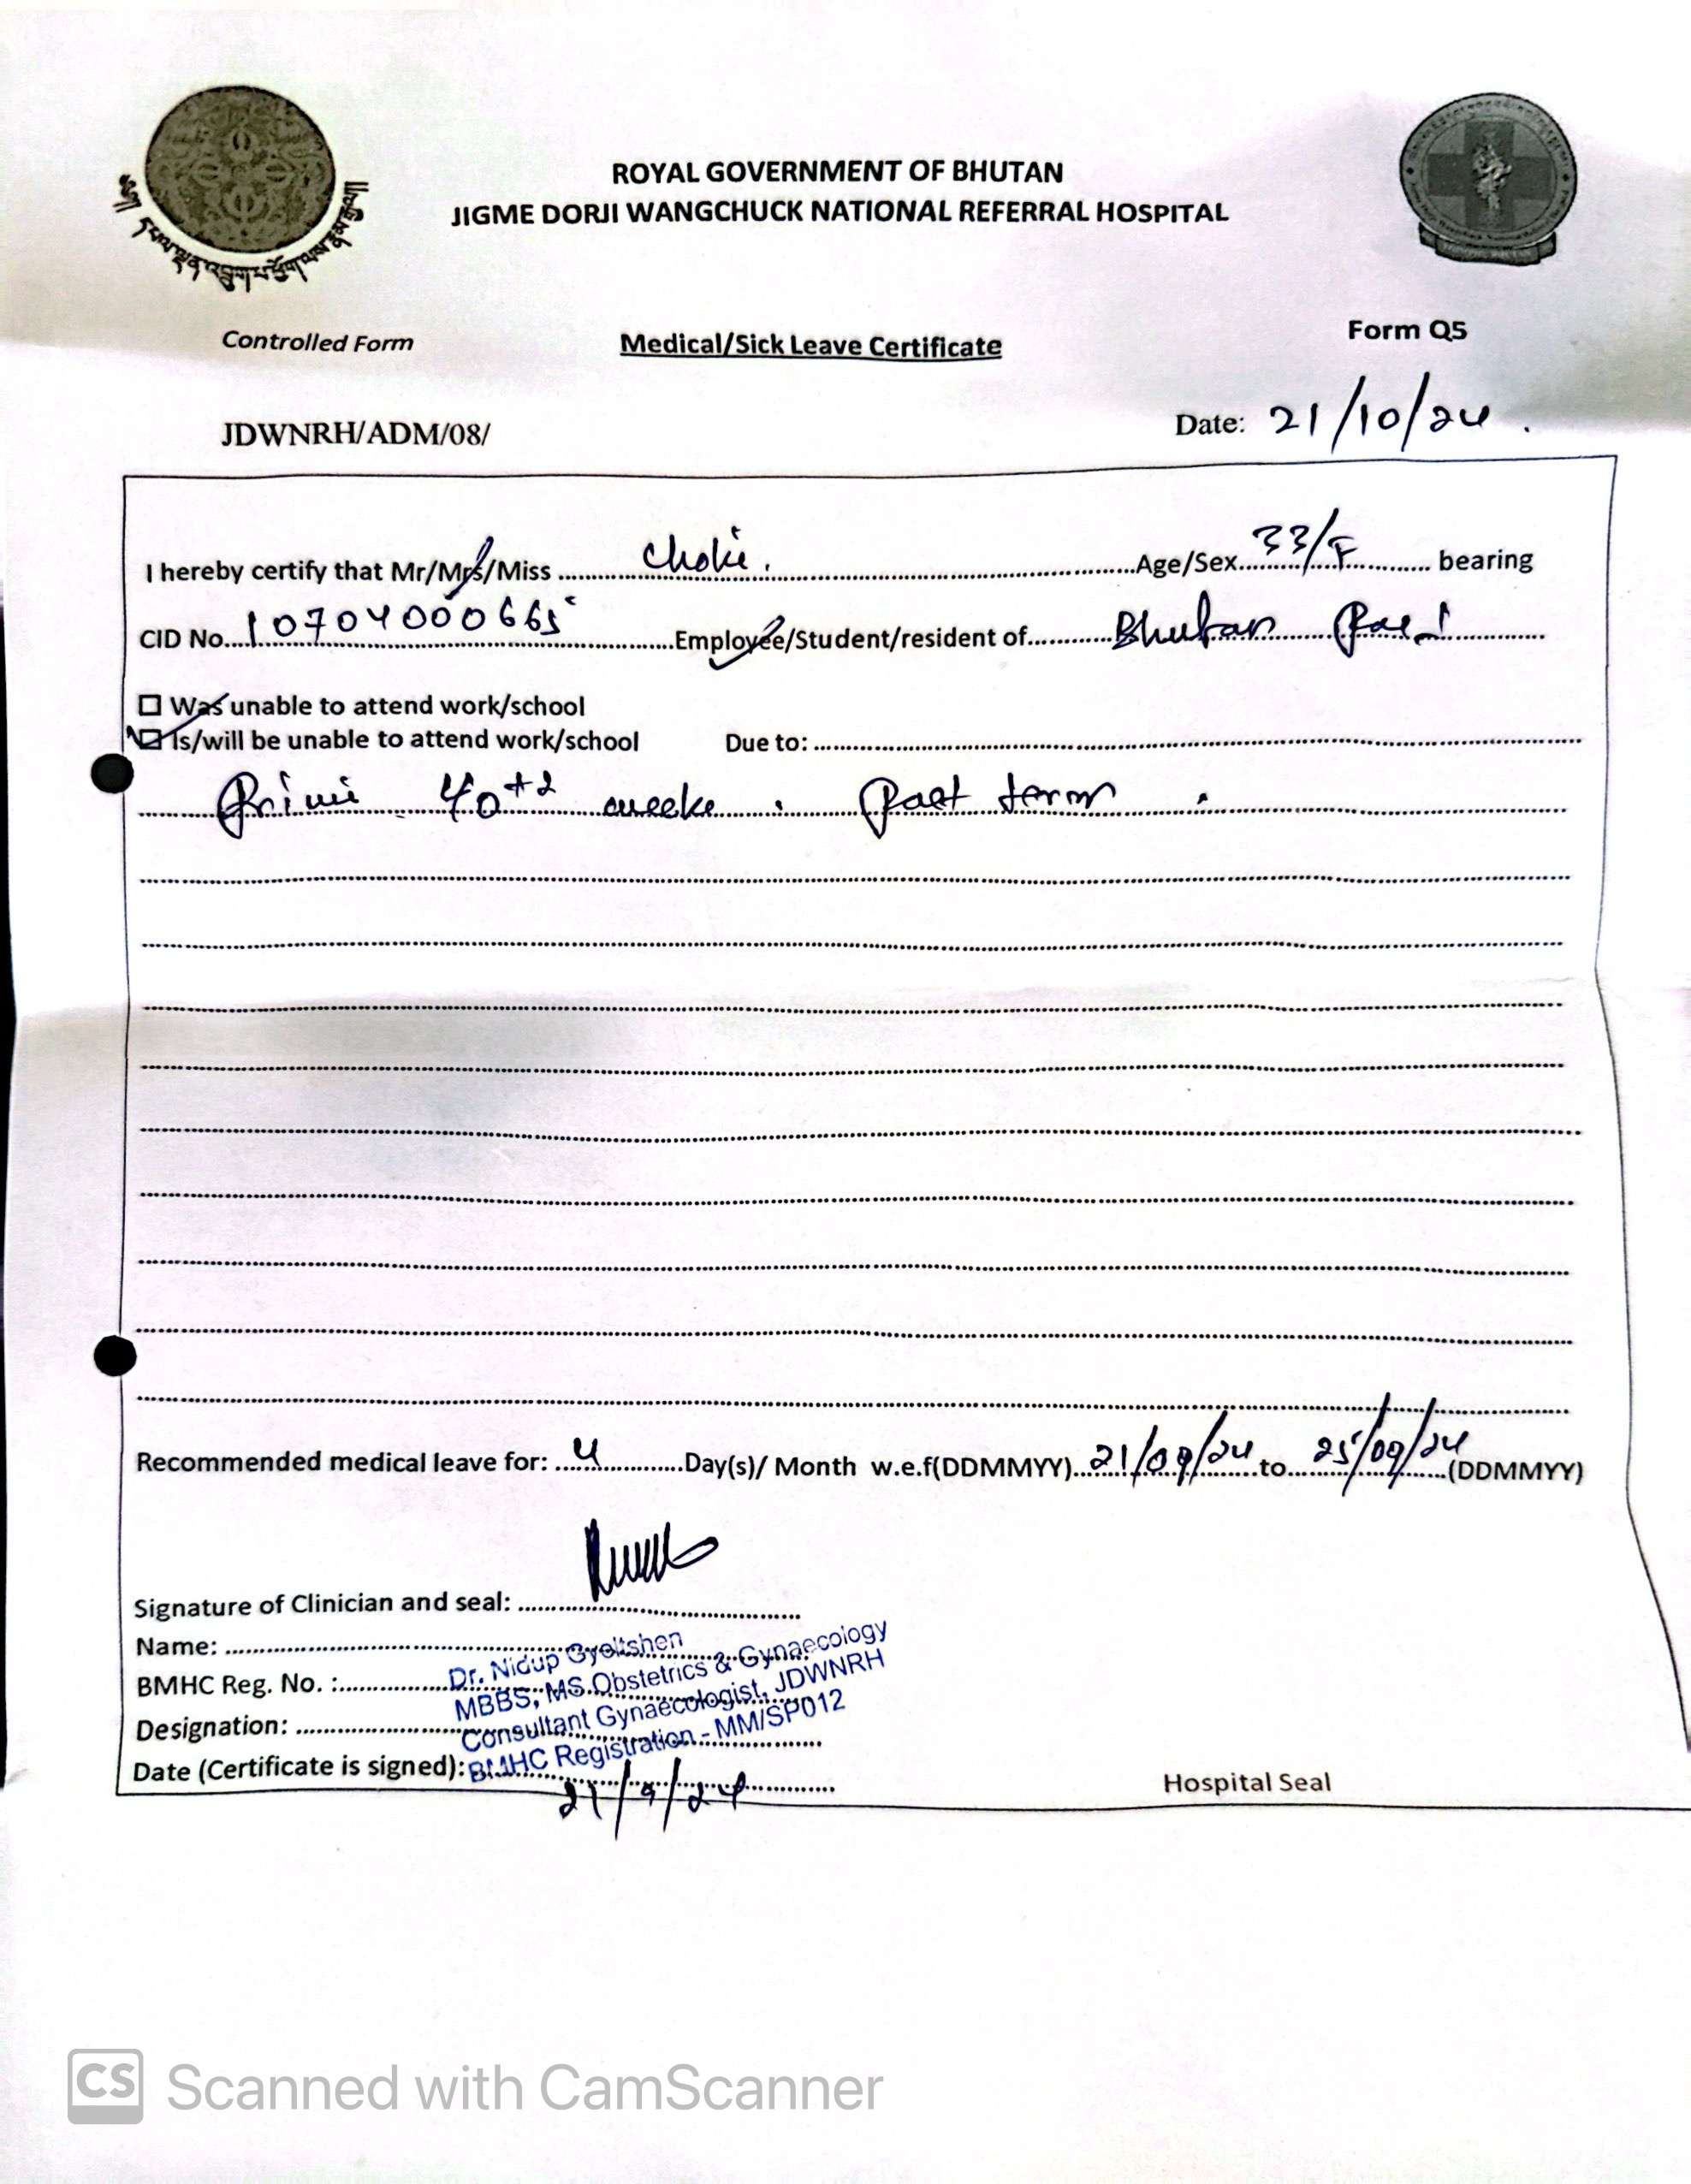 ROYAL GOVERNMENT OF BHUTAN
JIGME DORJI WANGCHUCK NATIONAL REFERRAL HOSPITAL
Controlled Form
Medical/Sick Leave Certificate
Form Q5
JDWNRH/ADM/08/
Date: 21/10/24.
I hereby certify that Mr/Mrs/Miss Choki. Age/Sex 33/F bearing
CID No. 10704000665 Employee/Student/resident of Bhutan Post
☐ Was unable to attend work/school
☑ Is/will be unable to attend work/school Due to:
Primi 40+2 weeks. Past term.
Recommended medical leave for: 4 Day(s)/ Month w.e.f(DDMMYY) 21/09/24 to 25/09/24 (DDMMYY)
Signature of Clinician and seal:
Name:
BMHC Reg. No. :
Designation:
Date (Certificate is signed):
Dr. Nidup Gyeltshen
MBBS, MS Obstetrics & Gynaecology
Consultant Gynaecologist, JDWNRH
BMHC Registration - MM/SP012
21/9/24
Hospital Seal
CS Scanned with CamScanner